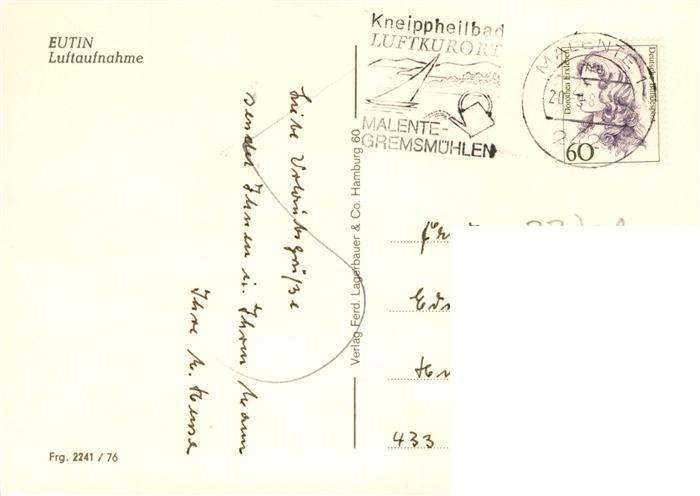 EUTIN
Luftaufnahme
Kneippheilbad
LUFTKURORT
MALENTE-
GREMSMÜHLEN
MALENTE 1
20
Deutsche Bundespost
Dorothea Erxleben
60
Liebe Urlaubsgrüße
sendet Ihnen u. Ihrem Mann
Ihre
Verlag Ferd. Lagerbauer & Co. Hamburg 60
433
Frg. 2241 / 76